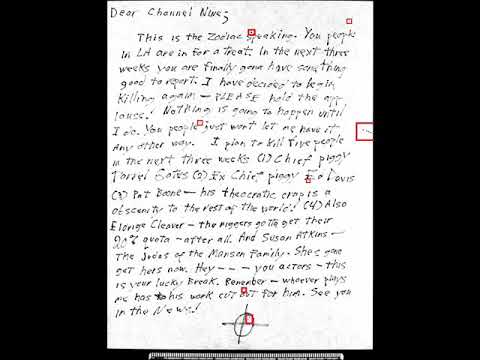 Dear Channel Nine;
This is the Zodiac speaking. You people
in LA are in for a treat. In the next three
weeks you are finally gona have something
good to report. I have decided to begin
killing again — PLEASE hold the app
lause! Nothing is going to happen until
I do. You people just wont let me have it
any other way. I plan to kill five people
in the next three weeks (1) Chief piggy
Darrel Gates (2) Ex Chief piggy Ed Davis
(3) Pat Boone — his theocratic crap is a
obscenity to the rest of the world! (4) Also
Eldrige Cleaver — the niggers gotta get their
20% quota — after all. And Susan Atkins —
The Judas of the Manson Family. Shes gona
get hers now. Hey — — — you actors — this
is your lucky break. Remember — whoever plays
me has his work cut out for him. See you
in the News!